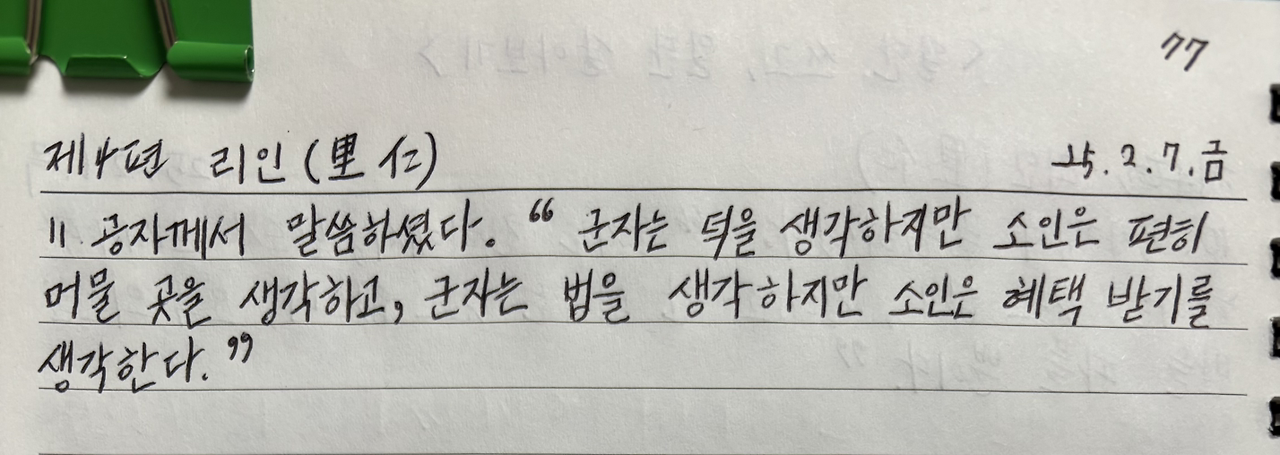 77
제4편 리인(里仁) 25.2.7.금
11 공자께서 말씀하셨다. “군자는 덕을 생각하지만 소인은 편히
머물 곳을 생각하고, 군자는 법을 생각하지만 소인은 혜택 받기를
생각한다.”